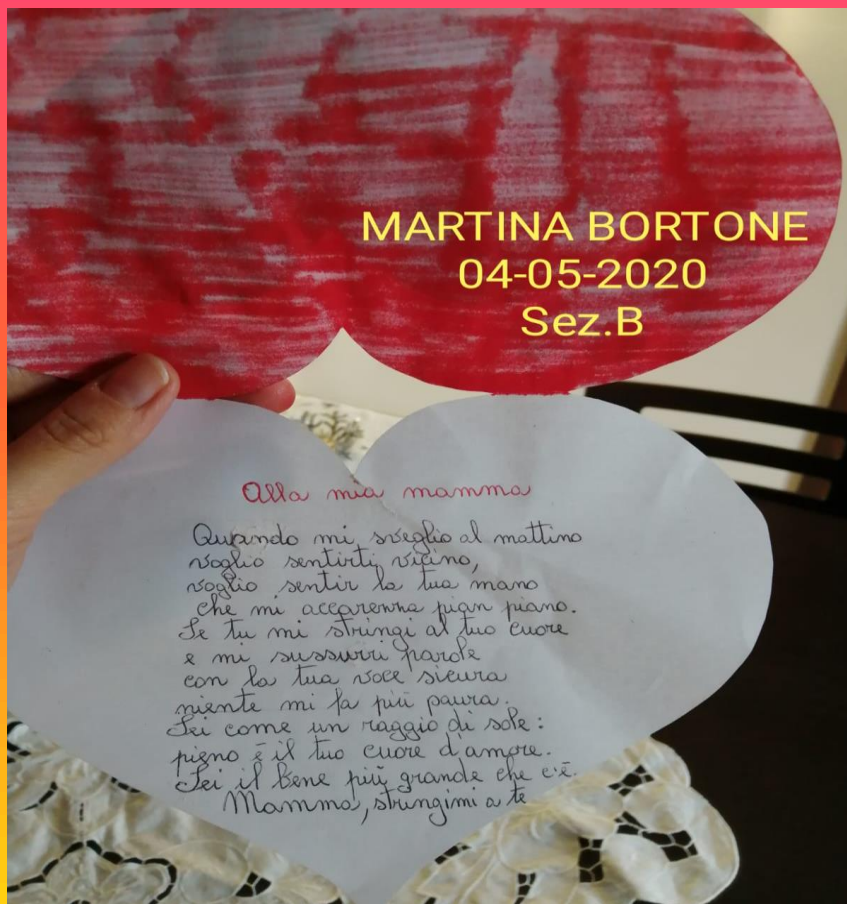 MARTINA BORTONE
04-05-2020
Sez.B
Alla mia mamma
Quando mi sveglio al mattino
voglio sentirti vicino,
voglio sentir la tua mano
che mi accarezza pian piano.
Se tu mi stringi al tuo cuore
e mi sussurri parole
con la tua voce sicura
niente mi fa più paura.
Sei come un raggio di sole:
pieno è il tuo cuore d'amore.
Sei il bene più grande che c'è.
Mamma, stringimi a te